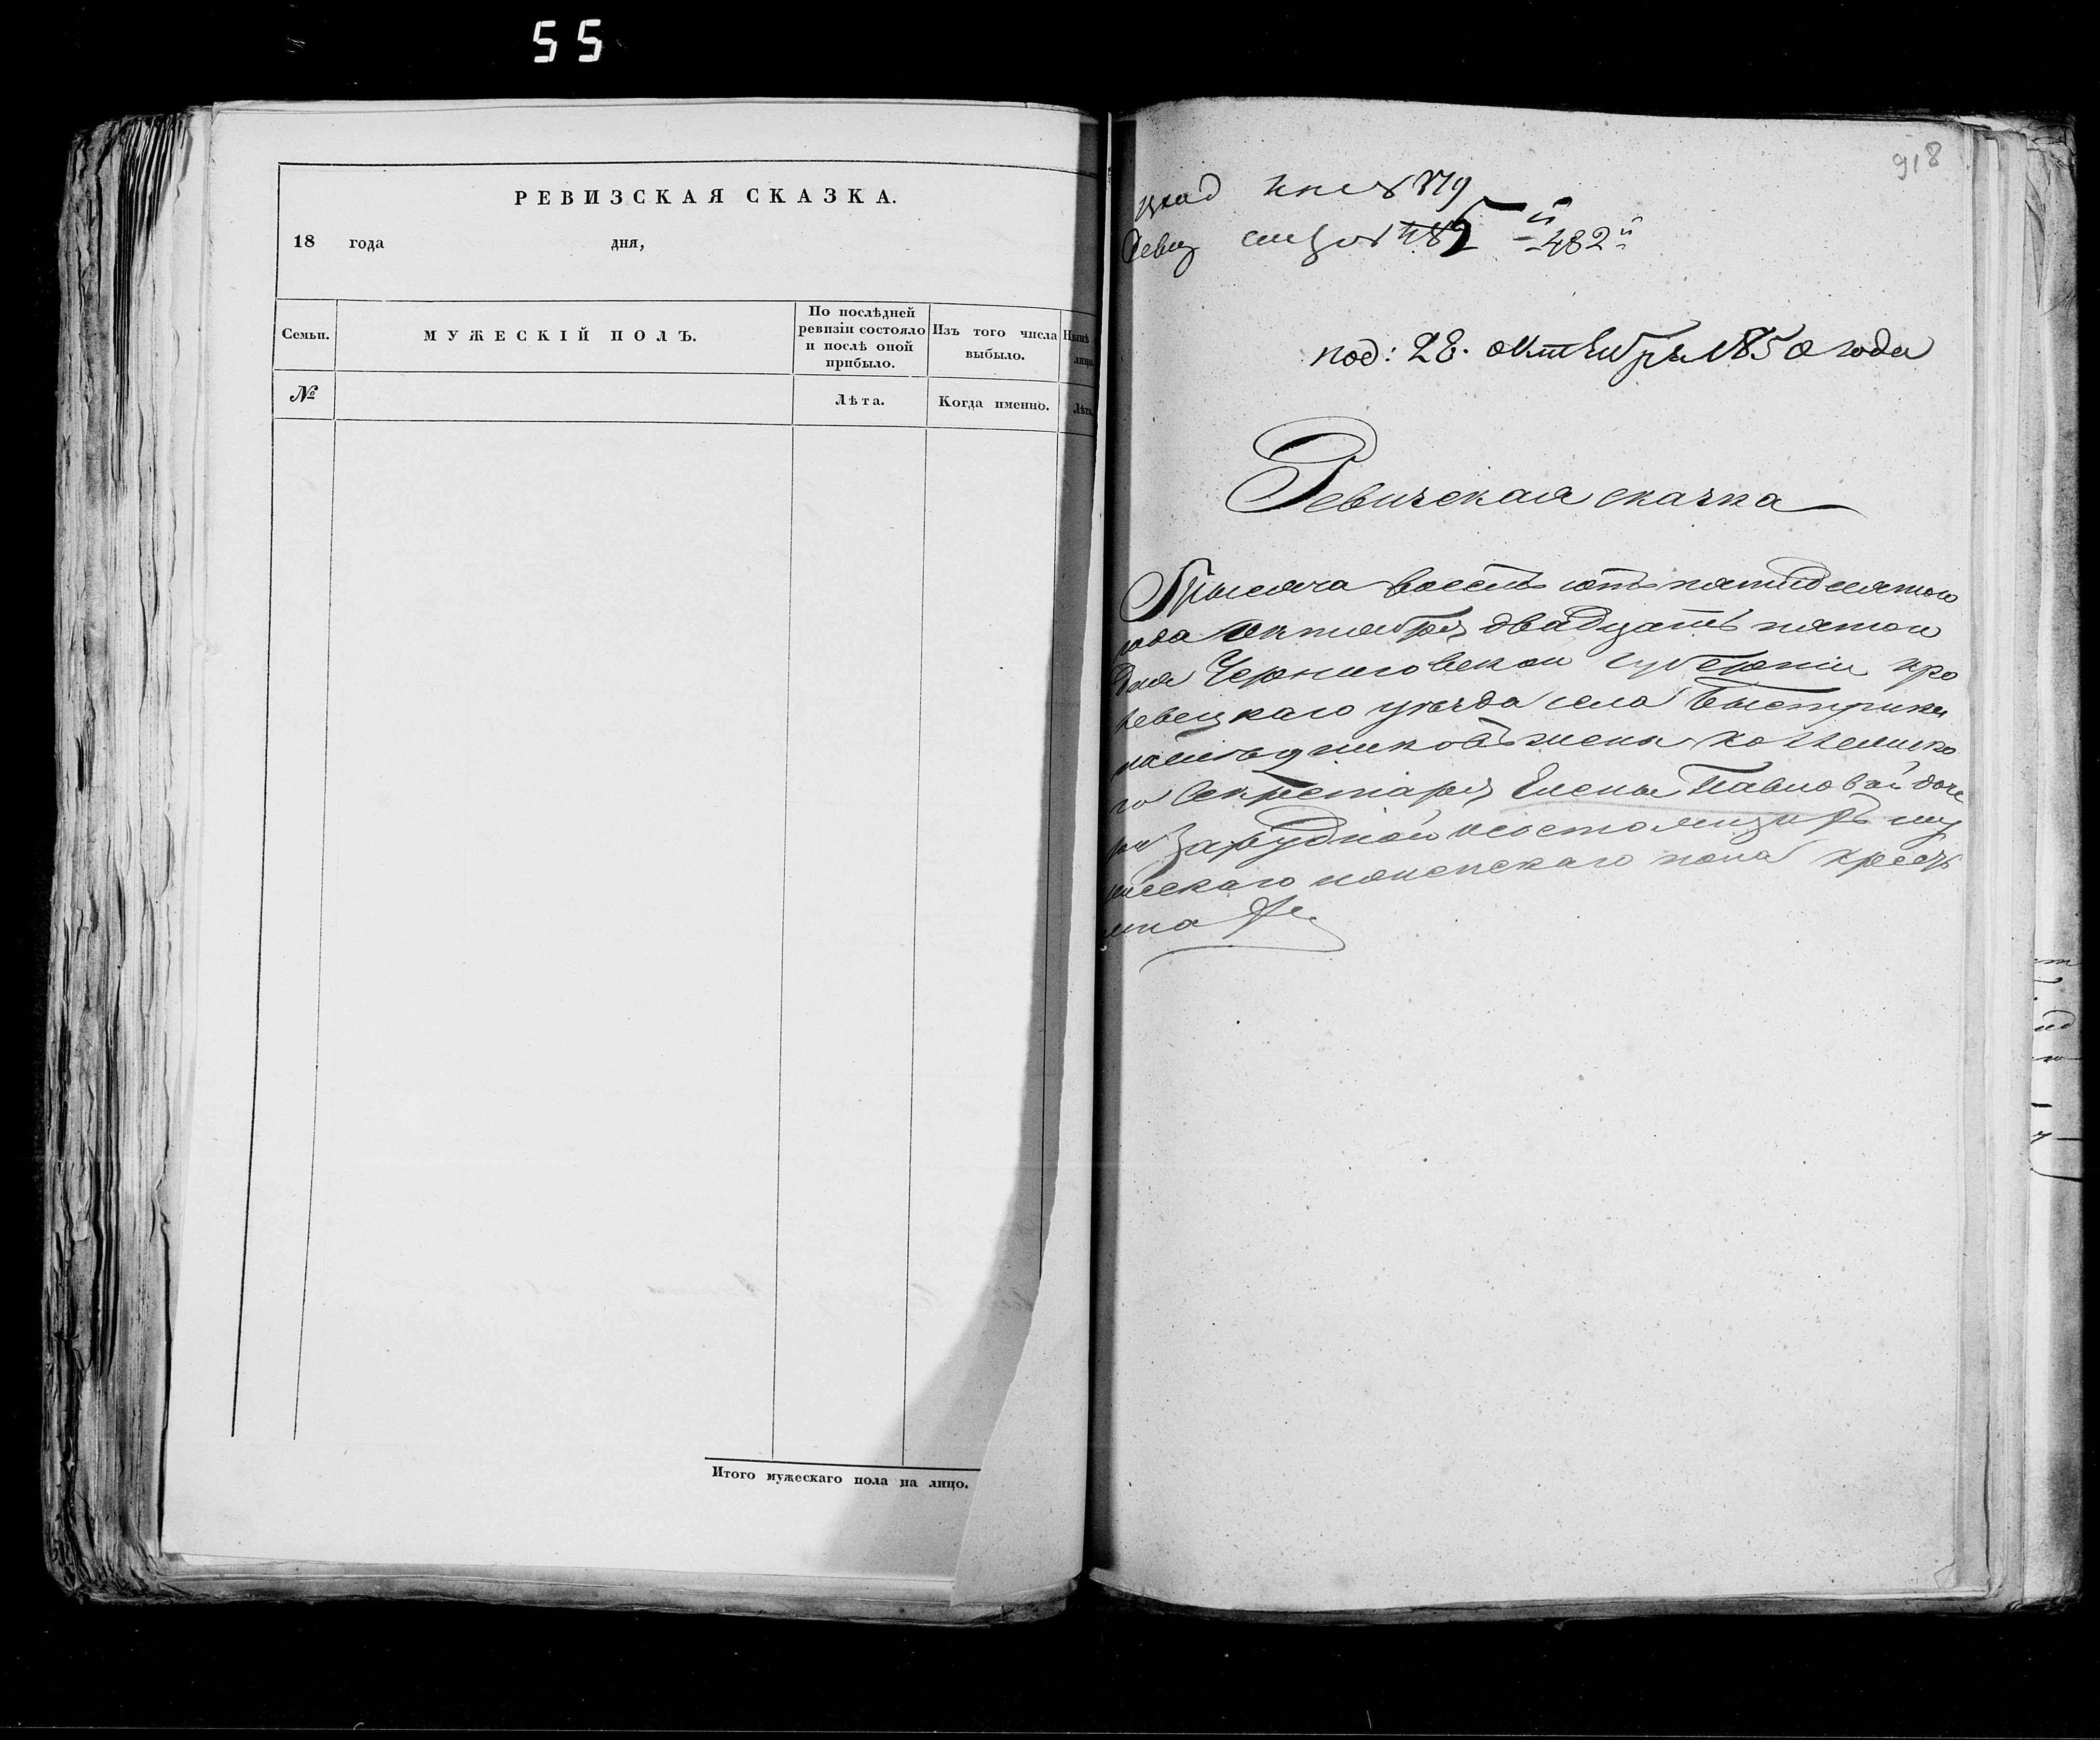 55
РЕВИЗСКАЯ СКАЗКА.
18 года дня,
Семьи.
МУЖЕСКІЙ ПОЛЪ.
По послѣдней ревизіи состояло и послѣ оной прибыло.
Изъ того числа выбыло.
№
Лѣта.
Когда именно.
Лѣта
Итого мужескаго пола на лицо.
918
482й
под: 28. октября 1850 года
Ревизская сказка
Тысяча восемь сотъ пятидесятого
года октября двадцать пятого
дня Черниговской губерніи кро
левецкаго уезда села Быстрика
жены колежско
го Секретаря Елены Павловой доче
ри Зарудной о состоящихъ му
жескаго и женскаго пола кресть